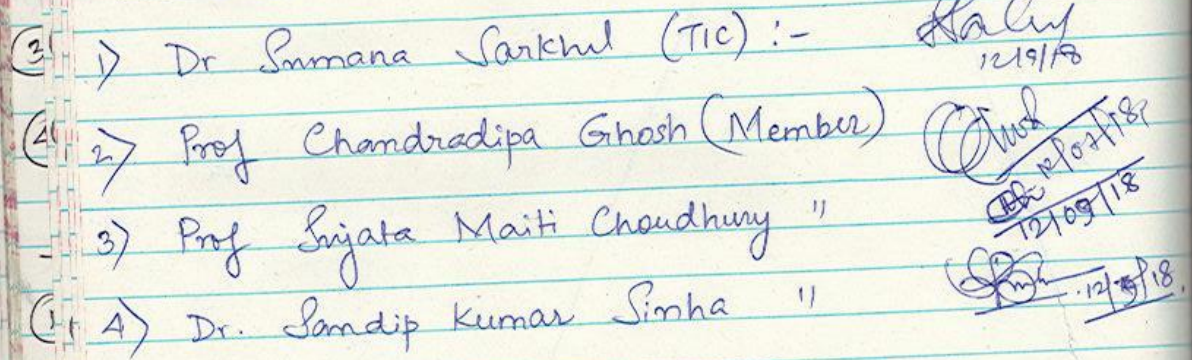 ③ 1) Dr Sumana Sarkhel (TIC) :-
12/9/18
④ 2) Prof Chandradipa Ghosh (Member)
12/07/18
3) Prof Srijata Maiti Choudhury "
12/09/18
4) Dr. Sandip Kumar Sinha " 12/9/18